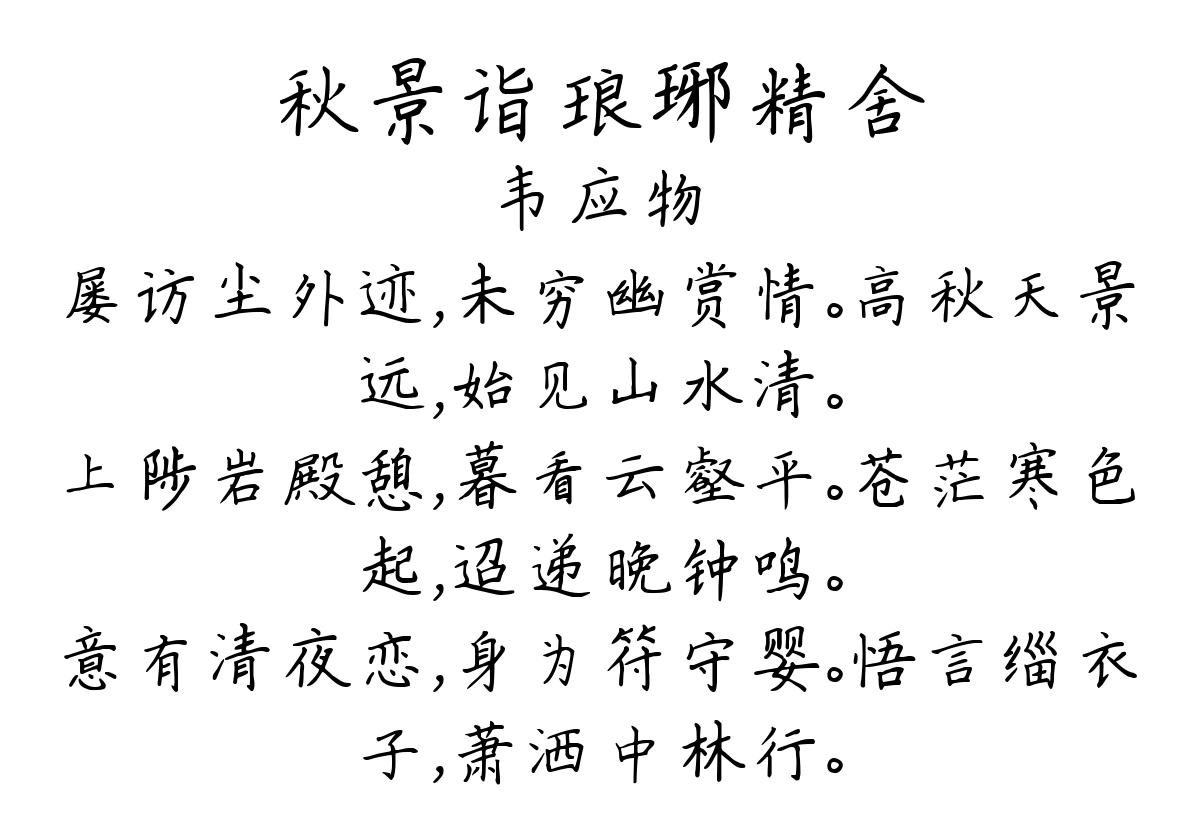 秋景诣琅琊精舍
韦应物
屡访尘外迹,未穷幽赏情。高秋天景
远,始见山水清。
上陟岩殿憩,暮看云壑平。苍茫寒色
起,迢递晚钟鸣。
意有清夜恋,身为符守婴。悟言缁衣
子,萧洒中林行。